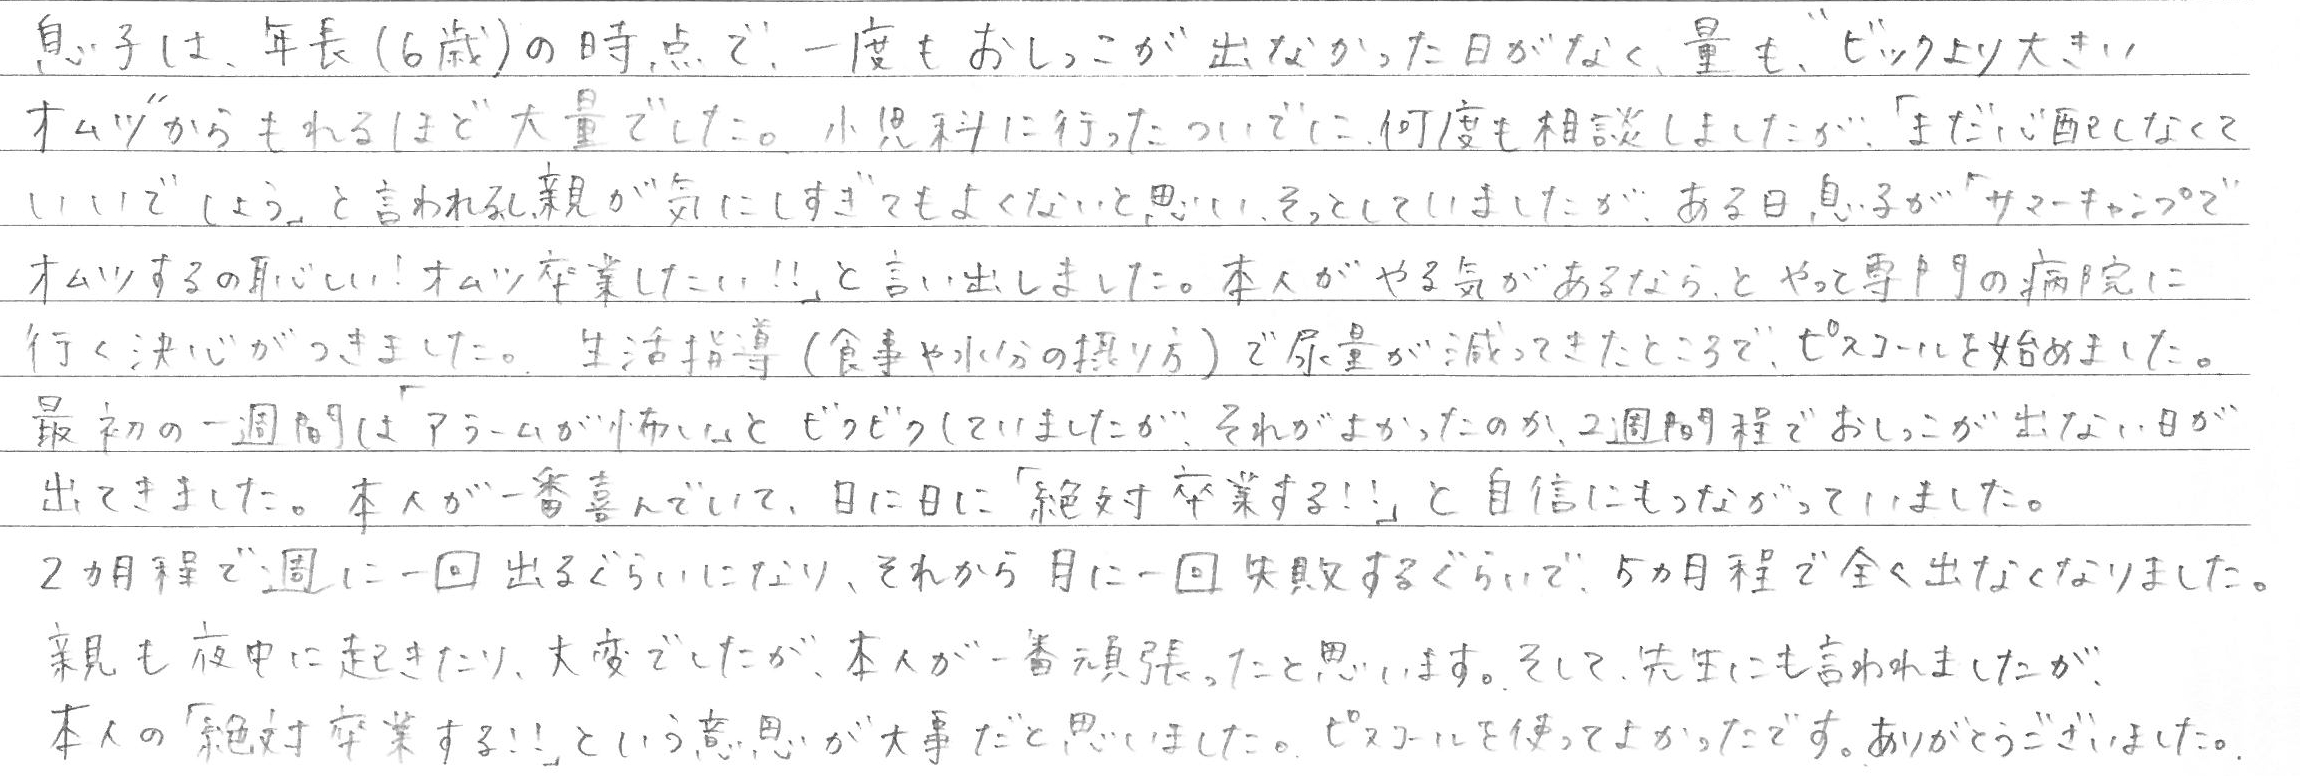 息子は、年長(6歳)の時点で、一度もおしっこが出なかった日がなく、量も、"ビックより大きい
オムツ"からもれるほど大量でした。小児科に行ったついでに、何度も相談しましたが、「まだ心配しなくて
いいでしょう」と言われるし親が気にしすぎてもよくないと思い、そっとしていましたが、ある日、息子が「サマーキャンプで
オムツするの恥しい!オムツ卒業したい!!」と言い出しました。本人がやる気があるなら、とやって専門の病院に
行く決心がつきました。生活指導(食事や水分の摂り方)で尿量が減ってきたところで、ピスコールを始めました。
最初の一週間は「アラームが怖い」とビクビクしていましたが、それがよかったのか、2週間程でおしっこが出ない日が
出てきました。本人が一番喜んでいて、日に日に「絶対卒業する!!」と自信にもつながっていました。
2カ月程で週に一回出るぐらいになり、それから月に一回失敗するぐらいで、5カ月程で全く出なくなりました。
親も夜中に起きたり、大変でしたが、本人が一番頑張ったと思います。そして、先生にも言われましたが、
本人の「絶対卒業する!!」という意思が大事だと思いました。ピスコールを使ってよかったです。ありがとうございました。